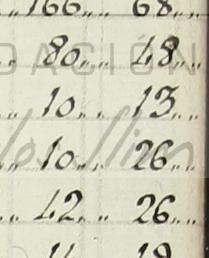 166 „ 68 „
80 „ 48 „
DACIÓN
10 „ 13 „
10 „ 26 „
42 „ 26 „